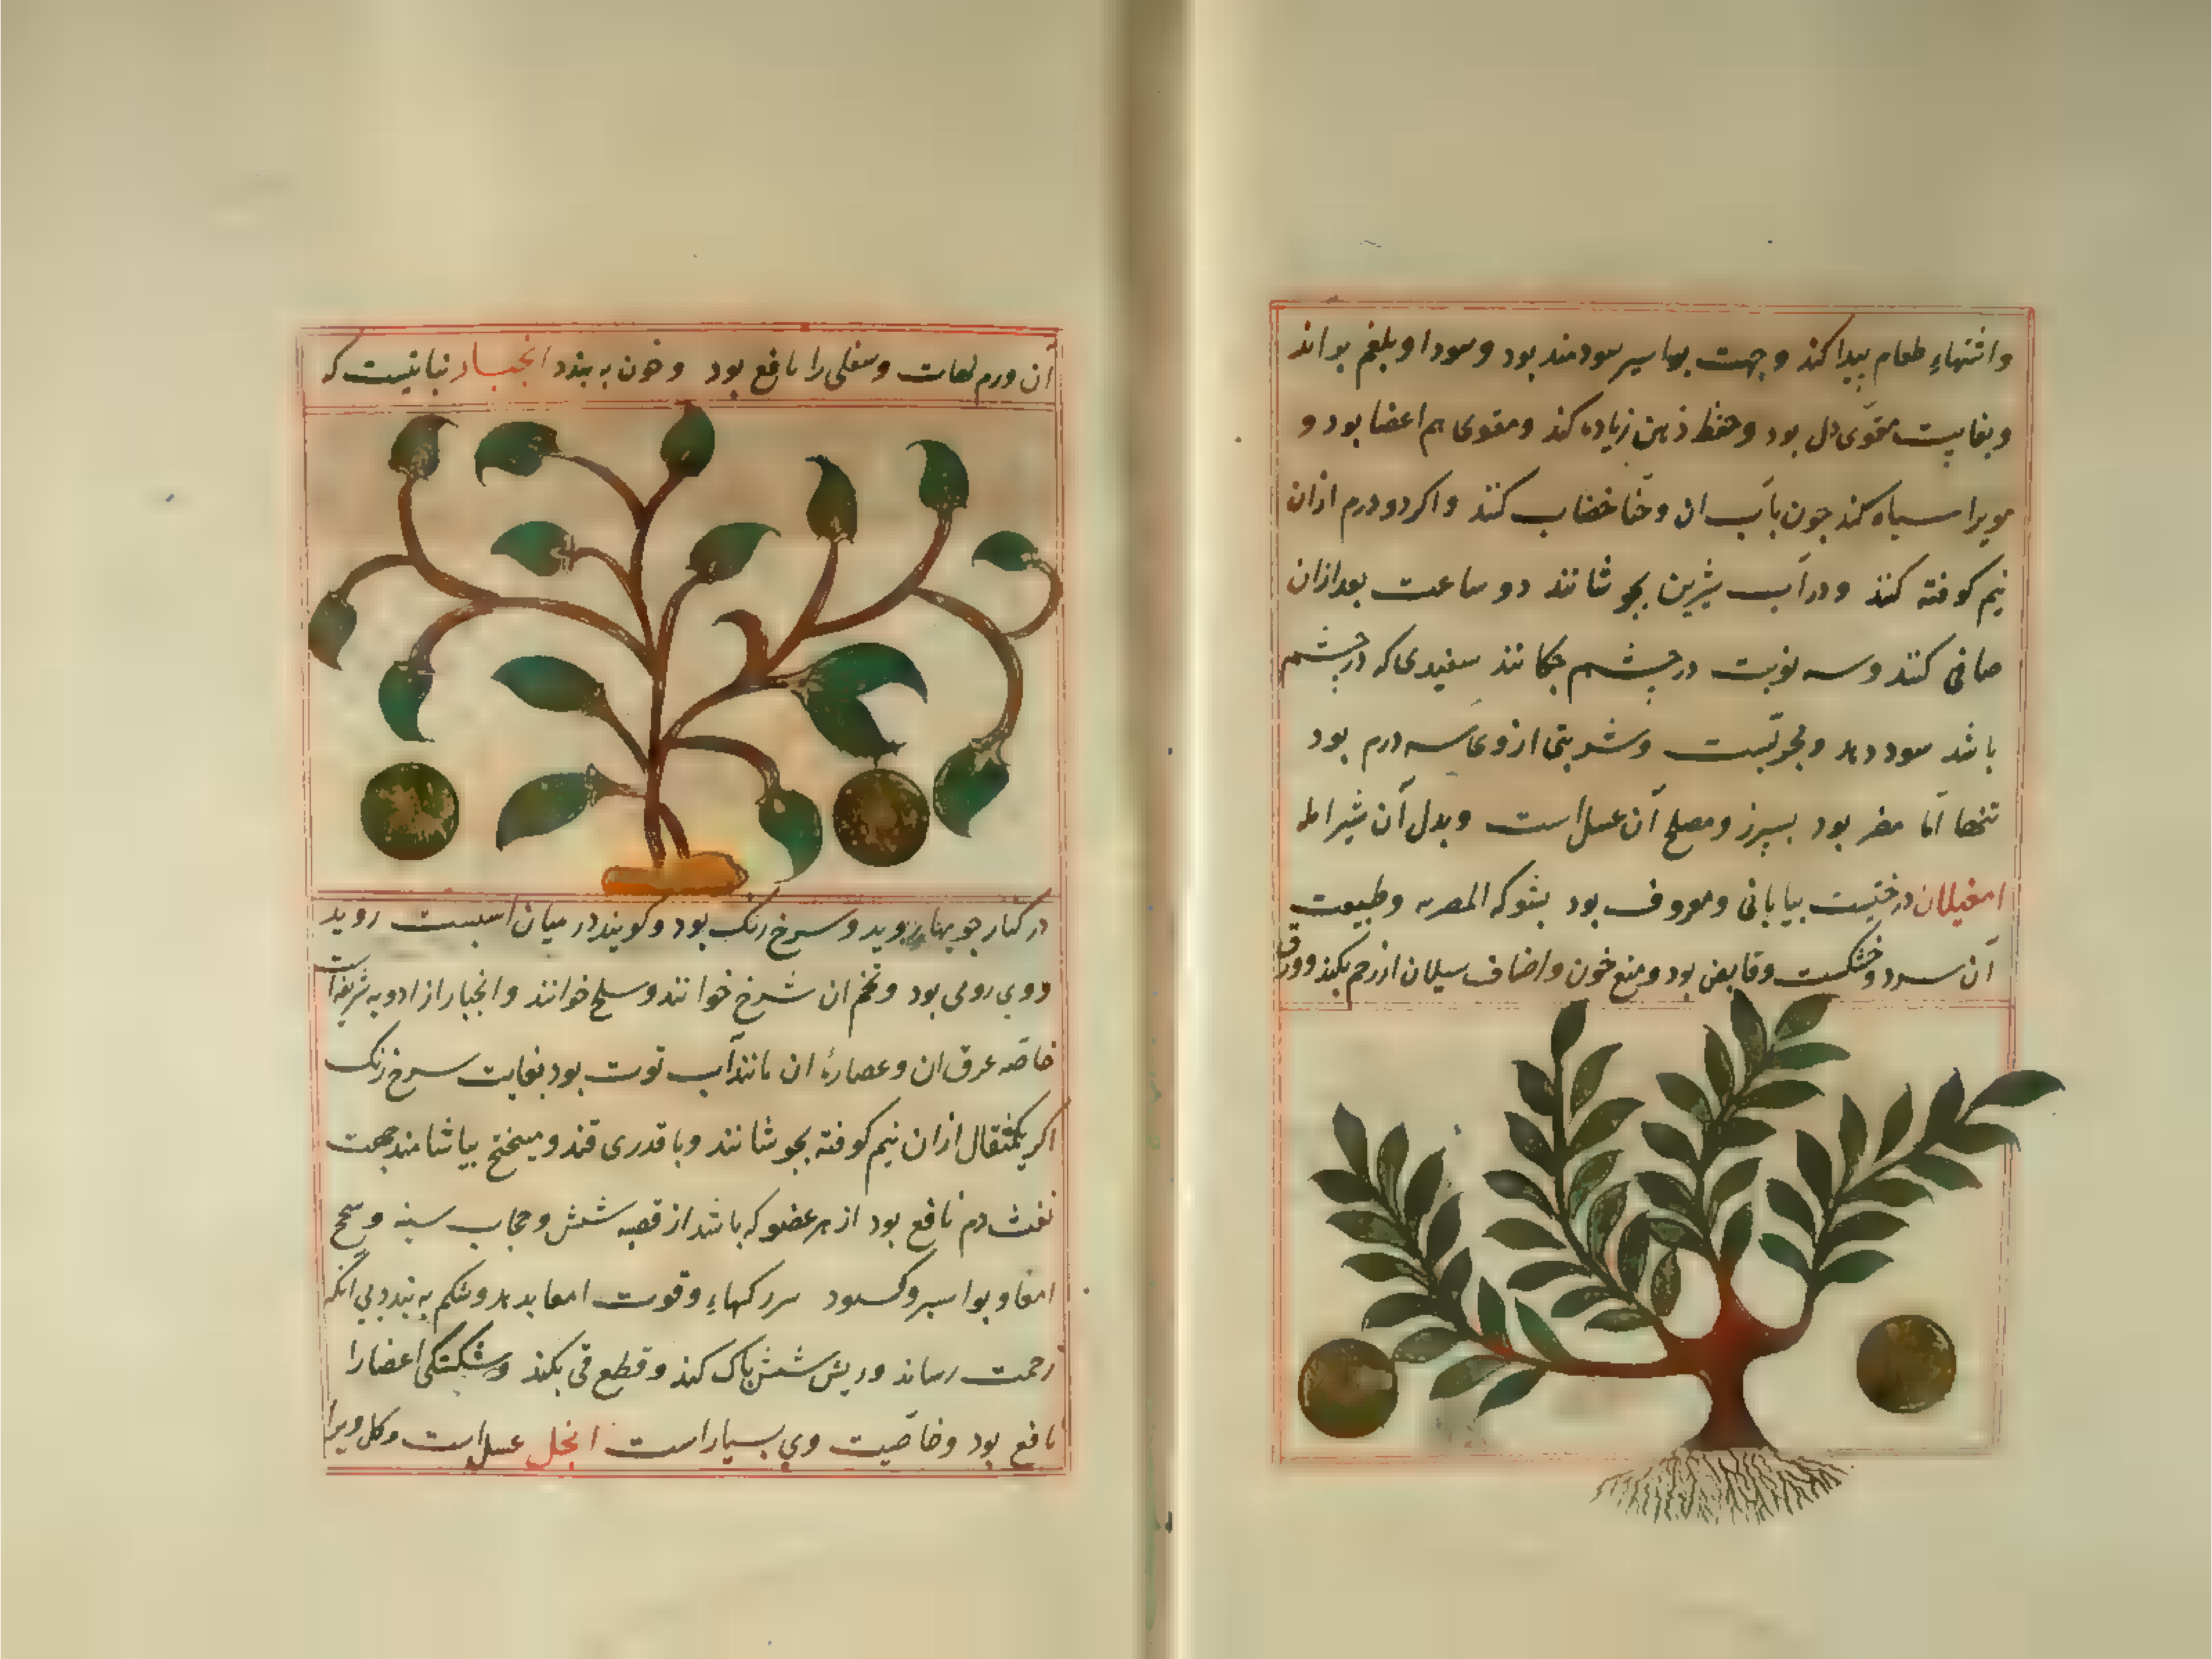 واشتهاءِ طعام پیدا کند و جهت بواسیر سودمند بود و سودا و بلغم براند
و بغایت مقوّی دل بود و حفظ ذهن زیاده کند و مقوی هم اعضا بود و
مویرا سیاه کند چون بآب ان و حنّا خضاب کنند و اکر دو درم ازان
نیم کوفته کنند و در آب شیرین بجوشانند دو ساعت بعد ازان
صافی کنند و سه نوبت در چشم چکانند سفیدی که در چشم
باشد سود دهد و مجرّبست و شربتی از وی سه درم بود
تنها امّا مضر بود بسپرز و مصلح آن عسل است و بدل آن شیر املج
امغیلان درختیست بیابانی و معروف بود بشوکه المصریه و طبیعت
آن سرد و خشکست و قابض بود و منع خون و اصناف سیلان از رحم بکند و ورق
آن ورم لهات و سفلی را نافع بود و خون به بندد انجبار نباتیست که
در کنار جویها روید و سرخ رنک بود و کویند در میان اسپست روید
و وی رومی بود و تخم ان سرخ خوانند و سلح خوانند و انجبار از ادویه شریف است
خاصّه عرق ان و عصارۀ ان مانند آب توت بود بغایت سرخ رنک
اکر یکمثقال ازان نیم کوفته بجوشانند و با قدری قند و میبختج بیاشامند جهت
نفث دم نافع بود از هر عضو که باشد از قصبه شش و حجاب سینه و سحج
امعا و بواسیر و کسود سر رکهاءِ و قوت امعا بدهد و شکم به بندد بی انکه
زحمت رساند و ریش شش پاک کند و قطع قی بکند و شکستکی اعضا را
نافع بود و خاصّیت وی بسیار است انجل عسل است و کل ویرا